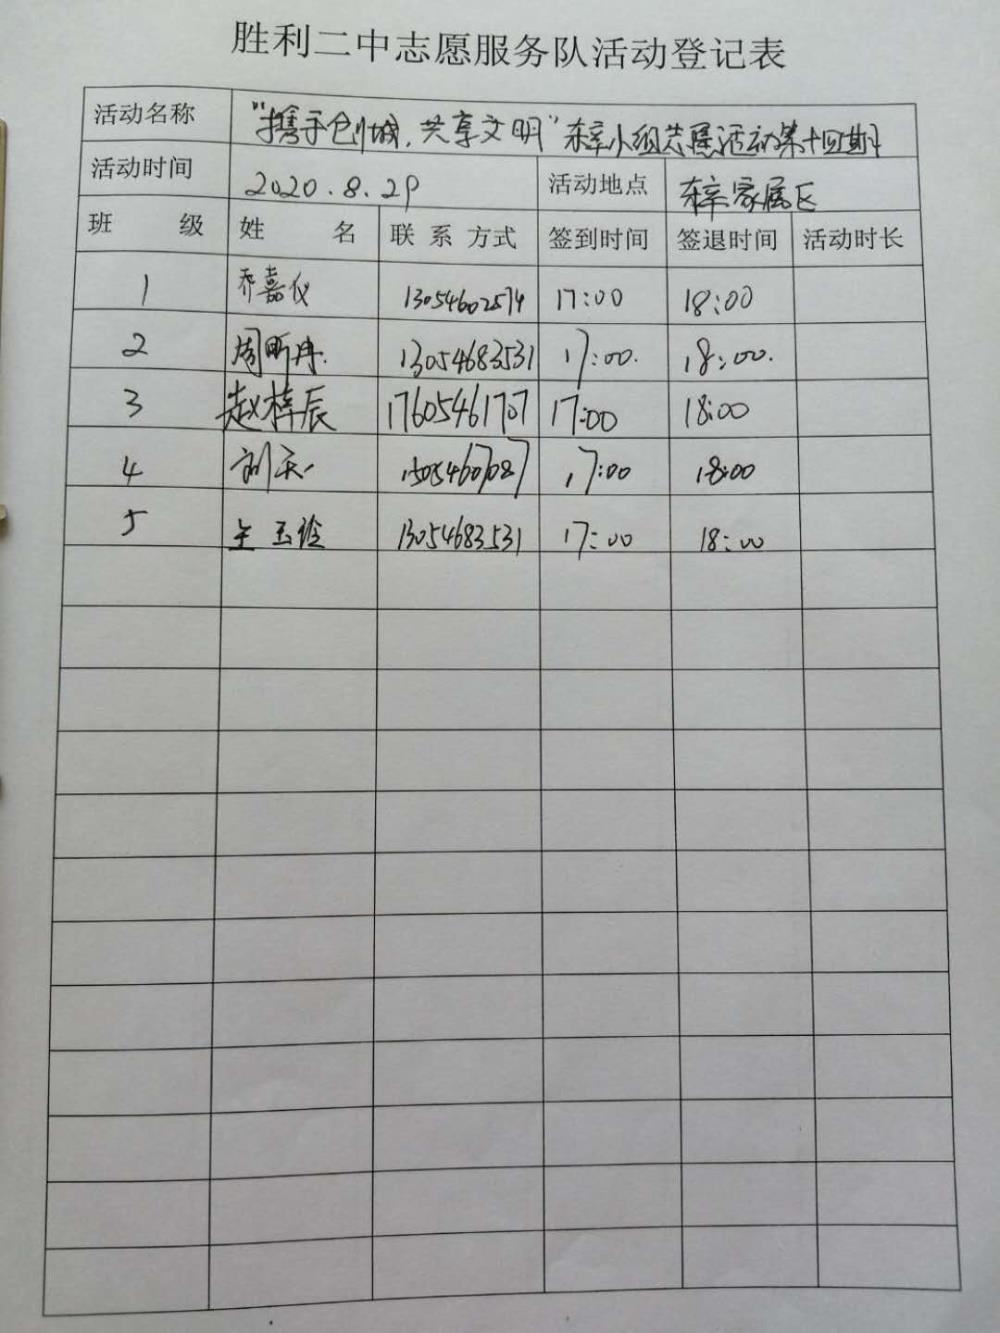 胜利二中志愿服务队活动登记表
活动名称 "携手创城,共享文明"东辛小组志愿活动第十四期
活动时间 2020.8.29 活动地点 东辛家属区
班 级 姓 名 联 系 方式 签到时间 签退时间 活动时长
1 乔嘉仪 13054602574 17:00 18:00
2 周昕冉. 13054683531 17:00. 18:00.
3 赵梓辰 17605461707 17:00 18:00
4 17:00 18:00
5 13054683531 17:00 18:00